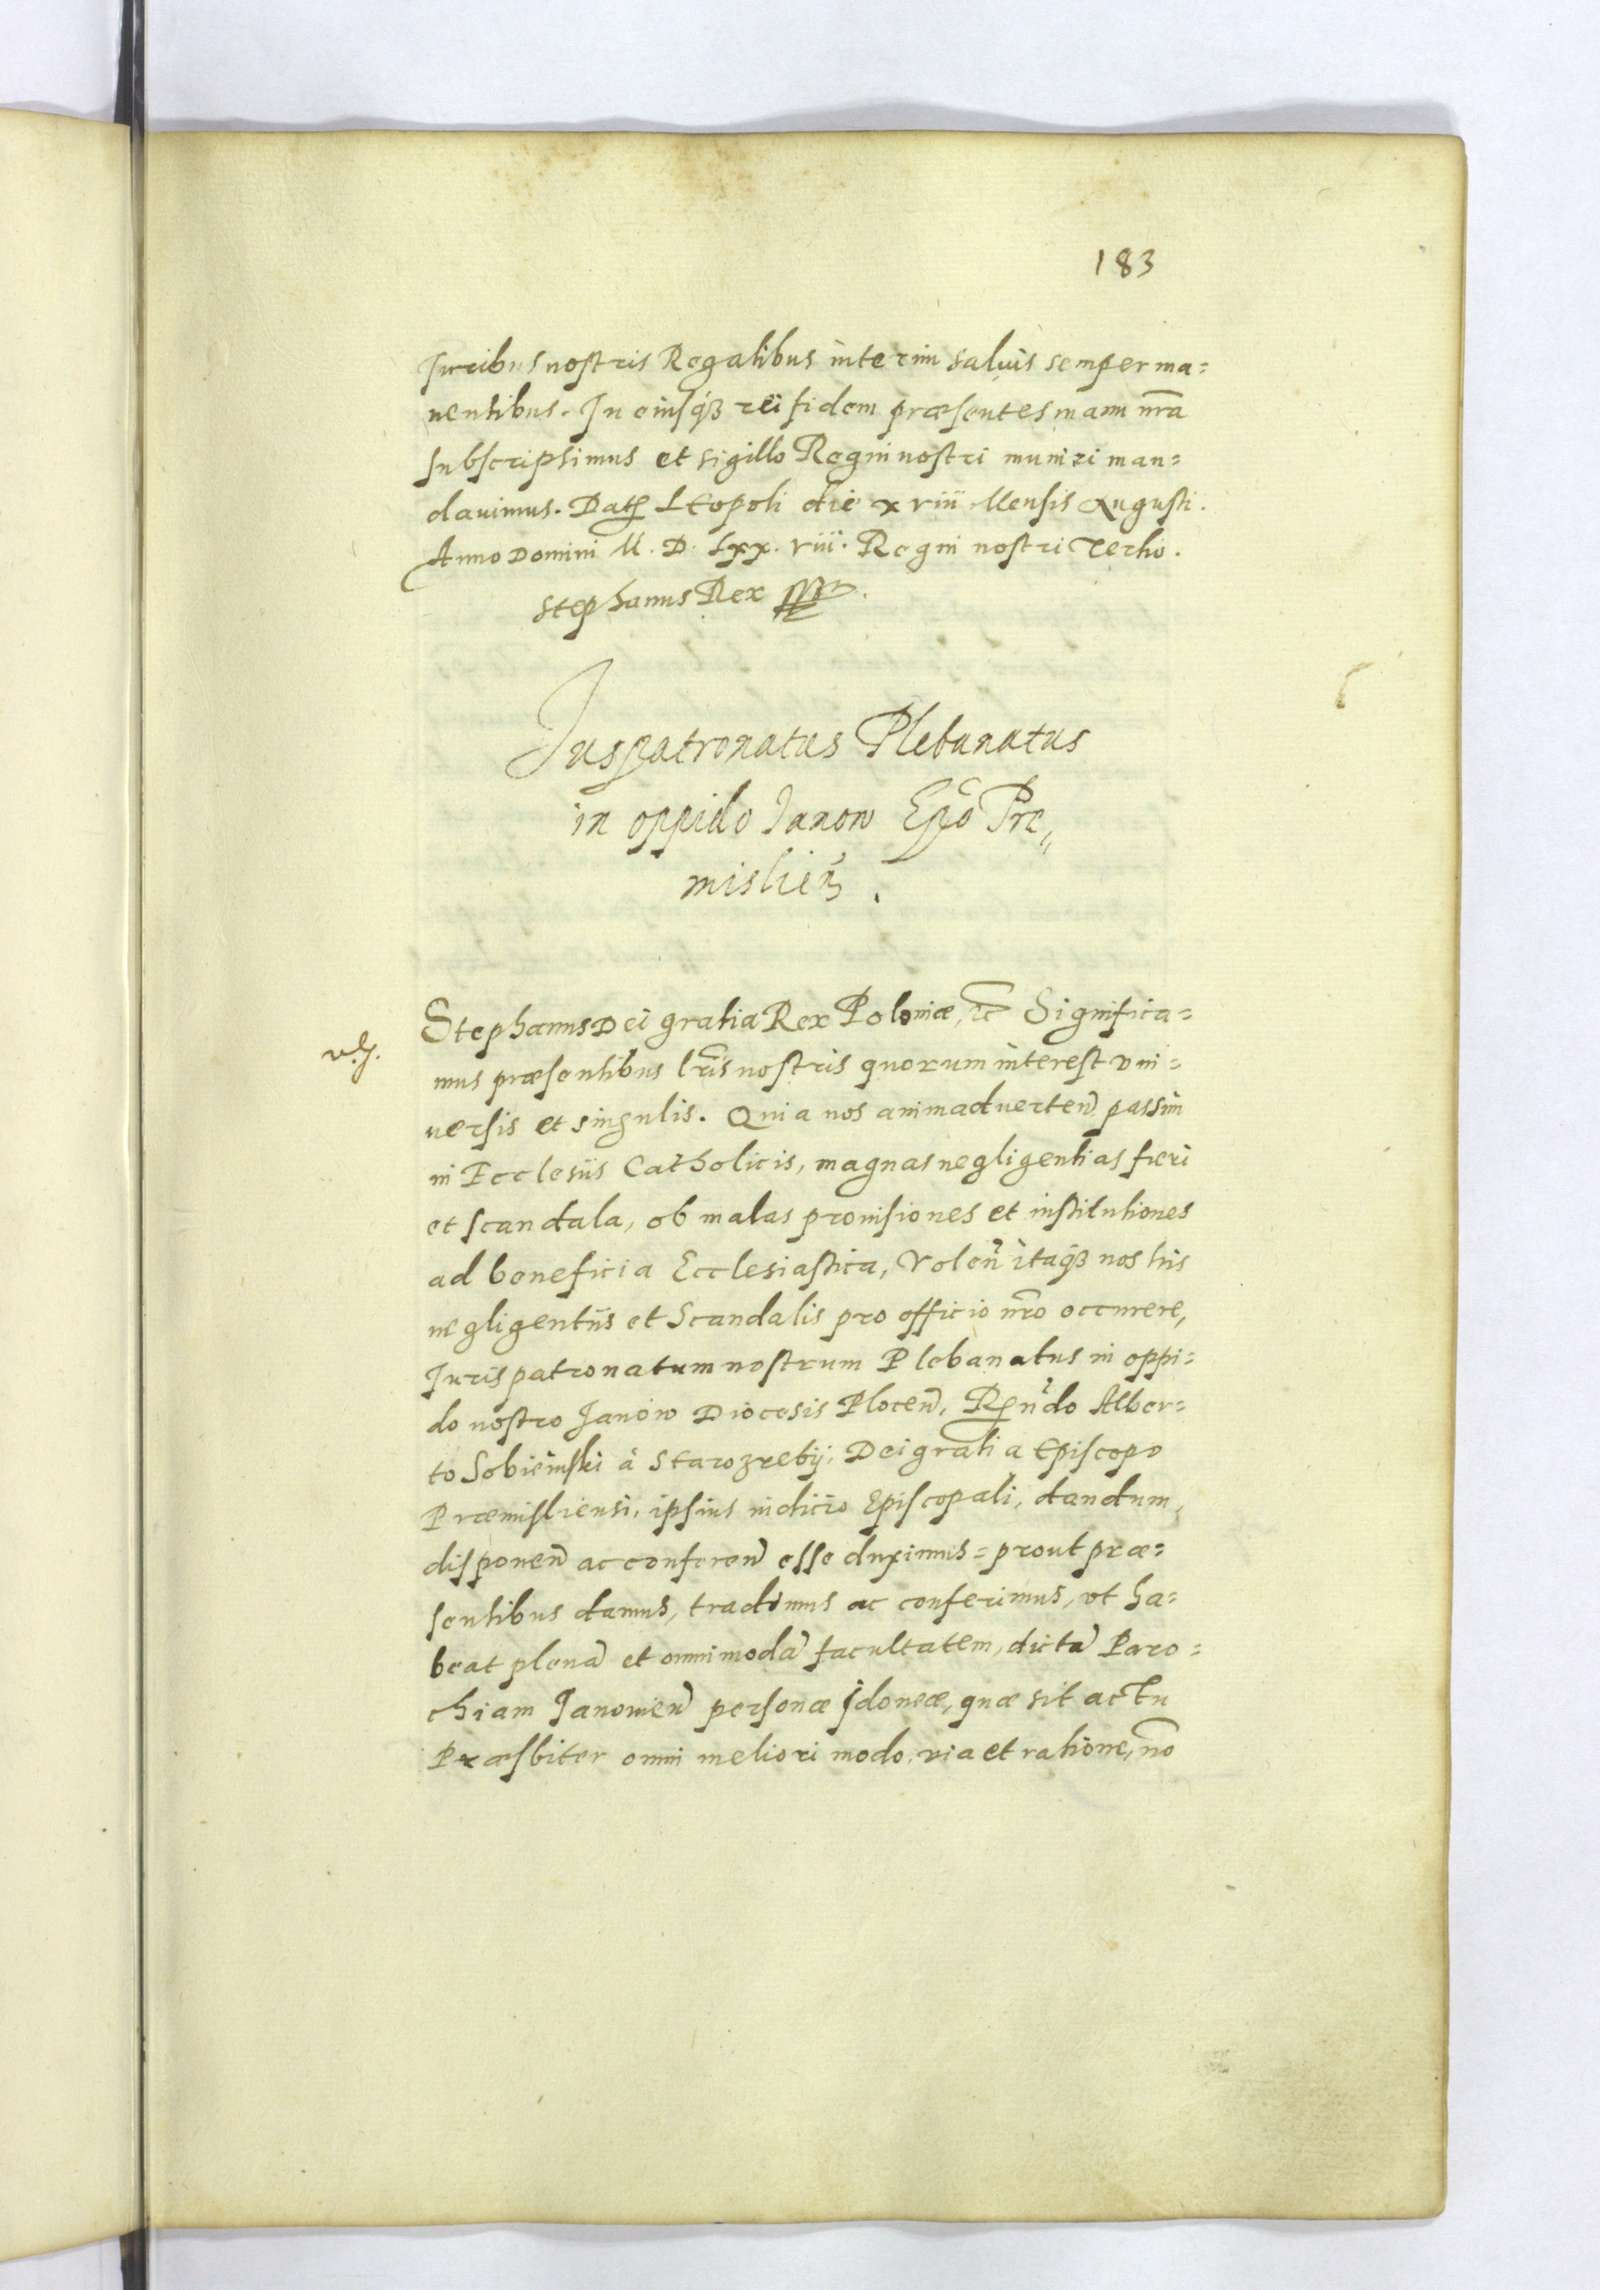 183
Juribus nostris Regalibus interim saluis semper ma=
nentibus. In eiusq₃ rei fidem præsentes manu nr̃a
subscripsimus et sigillo Regni nostri muniri man=
dauimus. Dat Leopoli die x viii Mensis Augusti.
Anno Domini M. D. Lxx. viii. Regni nostri Tertio.
Stephanus Rex
Juspatronatus Plebanatus
in oppido Janow Ep̃o Pre„
mislien̄ .
Stephanus Dei gratia Rex Poloniæ, ꝛc̃ Significa=
mus præsentibus lr̃is nostris quorum interest vni=
uersis et singulis. Quia nos animaduerten̄ passim
in Ecclesiis Catholicis, magnas negligentias fieri
et scandala, ob malas prouisiones et institutiones
ad beneficia Ecclesiastica, Volen̄ itaq₃ nos his
negligentiis et Scandalis pro officio nr̃o occurrere,
Jurispatronatum nostrum Plebanatus in oppi=
do nostro Janow Diocesis Plocen̄. Rñdo Alber=
to Sobieiuski à Starozreby, Dei gratia Episcopo
Præmisliensi, ipsius iudicio Episcopali, dandum,
disponen̄ ac conferen̄ esse duximus = prout præ=
sentibus damus, tradimus ac conferimus, vt ha=
beat plenā et omnimodā facultatem, dictā Paro=
chiam Janouien̄ personæ idoneæ, quæ sit actu
Præsbiter omni meliori modo, via et ratione, nõ